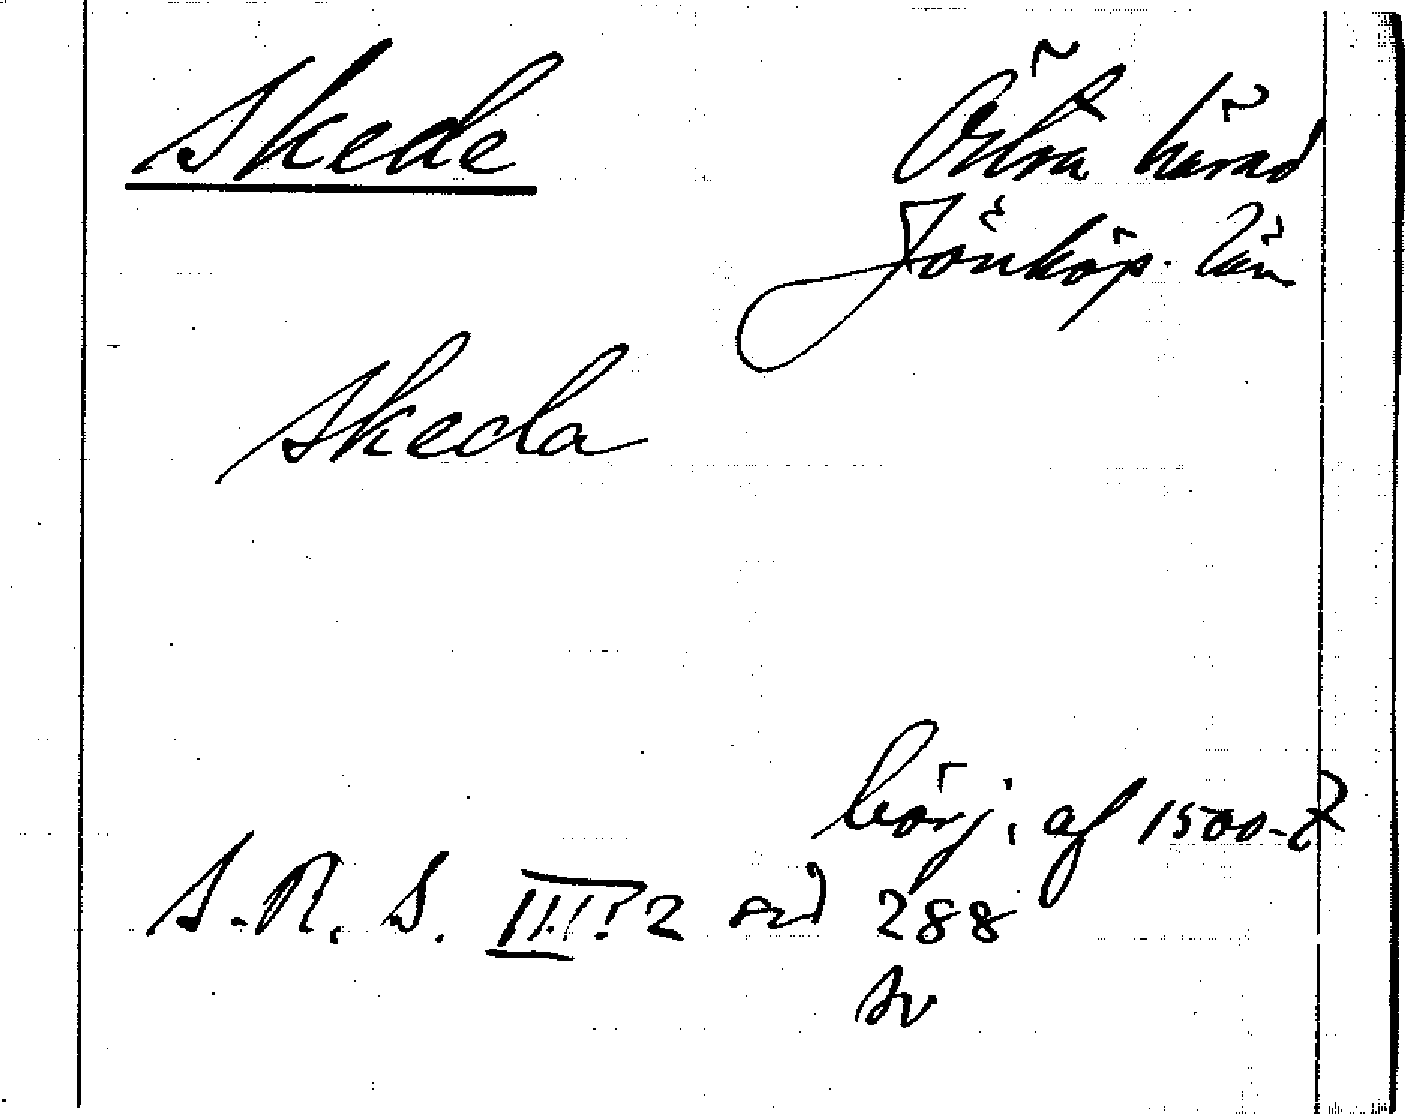 Skede
Östra härad
Jönköp. län
Skeda
börj. af 1500-t
S. R. S. III: 2 sid 288
sv